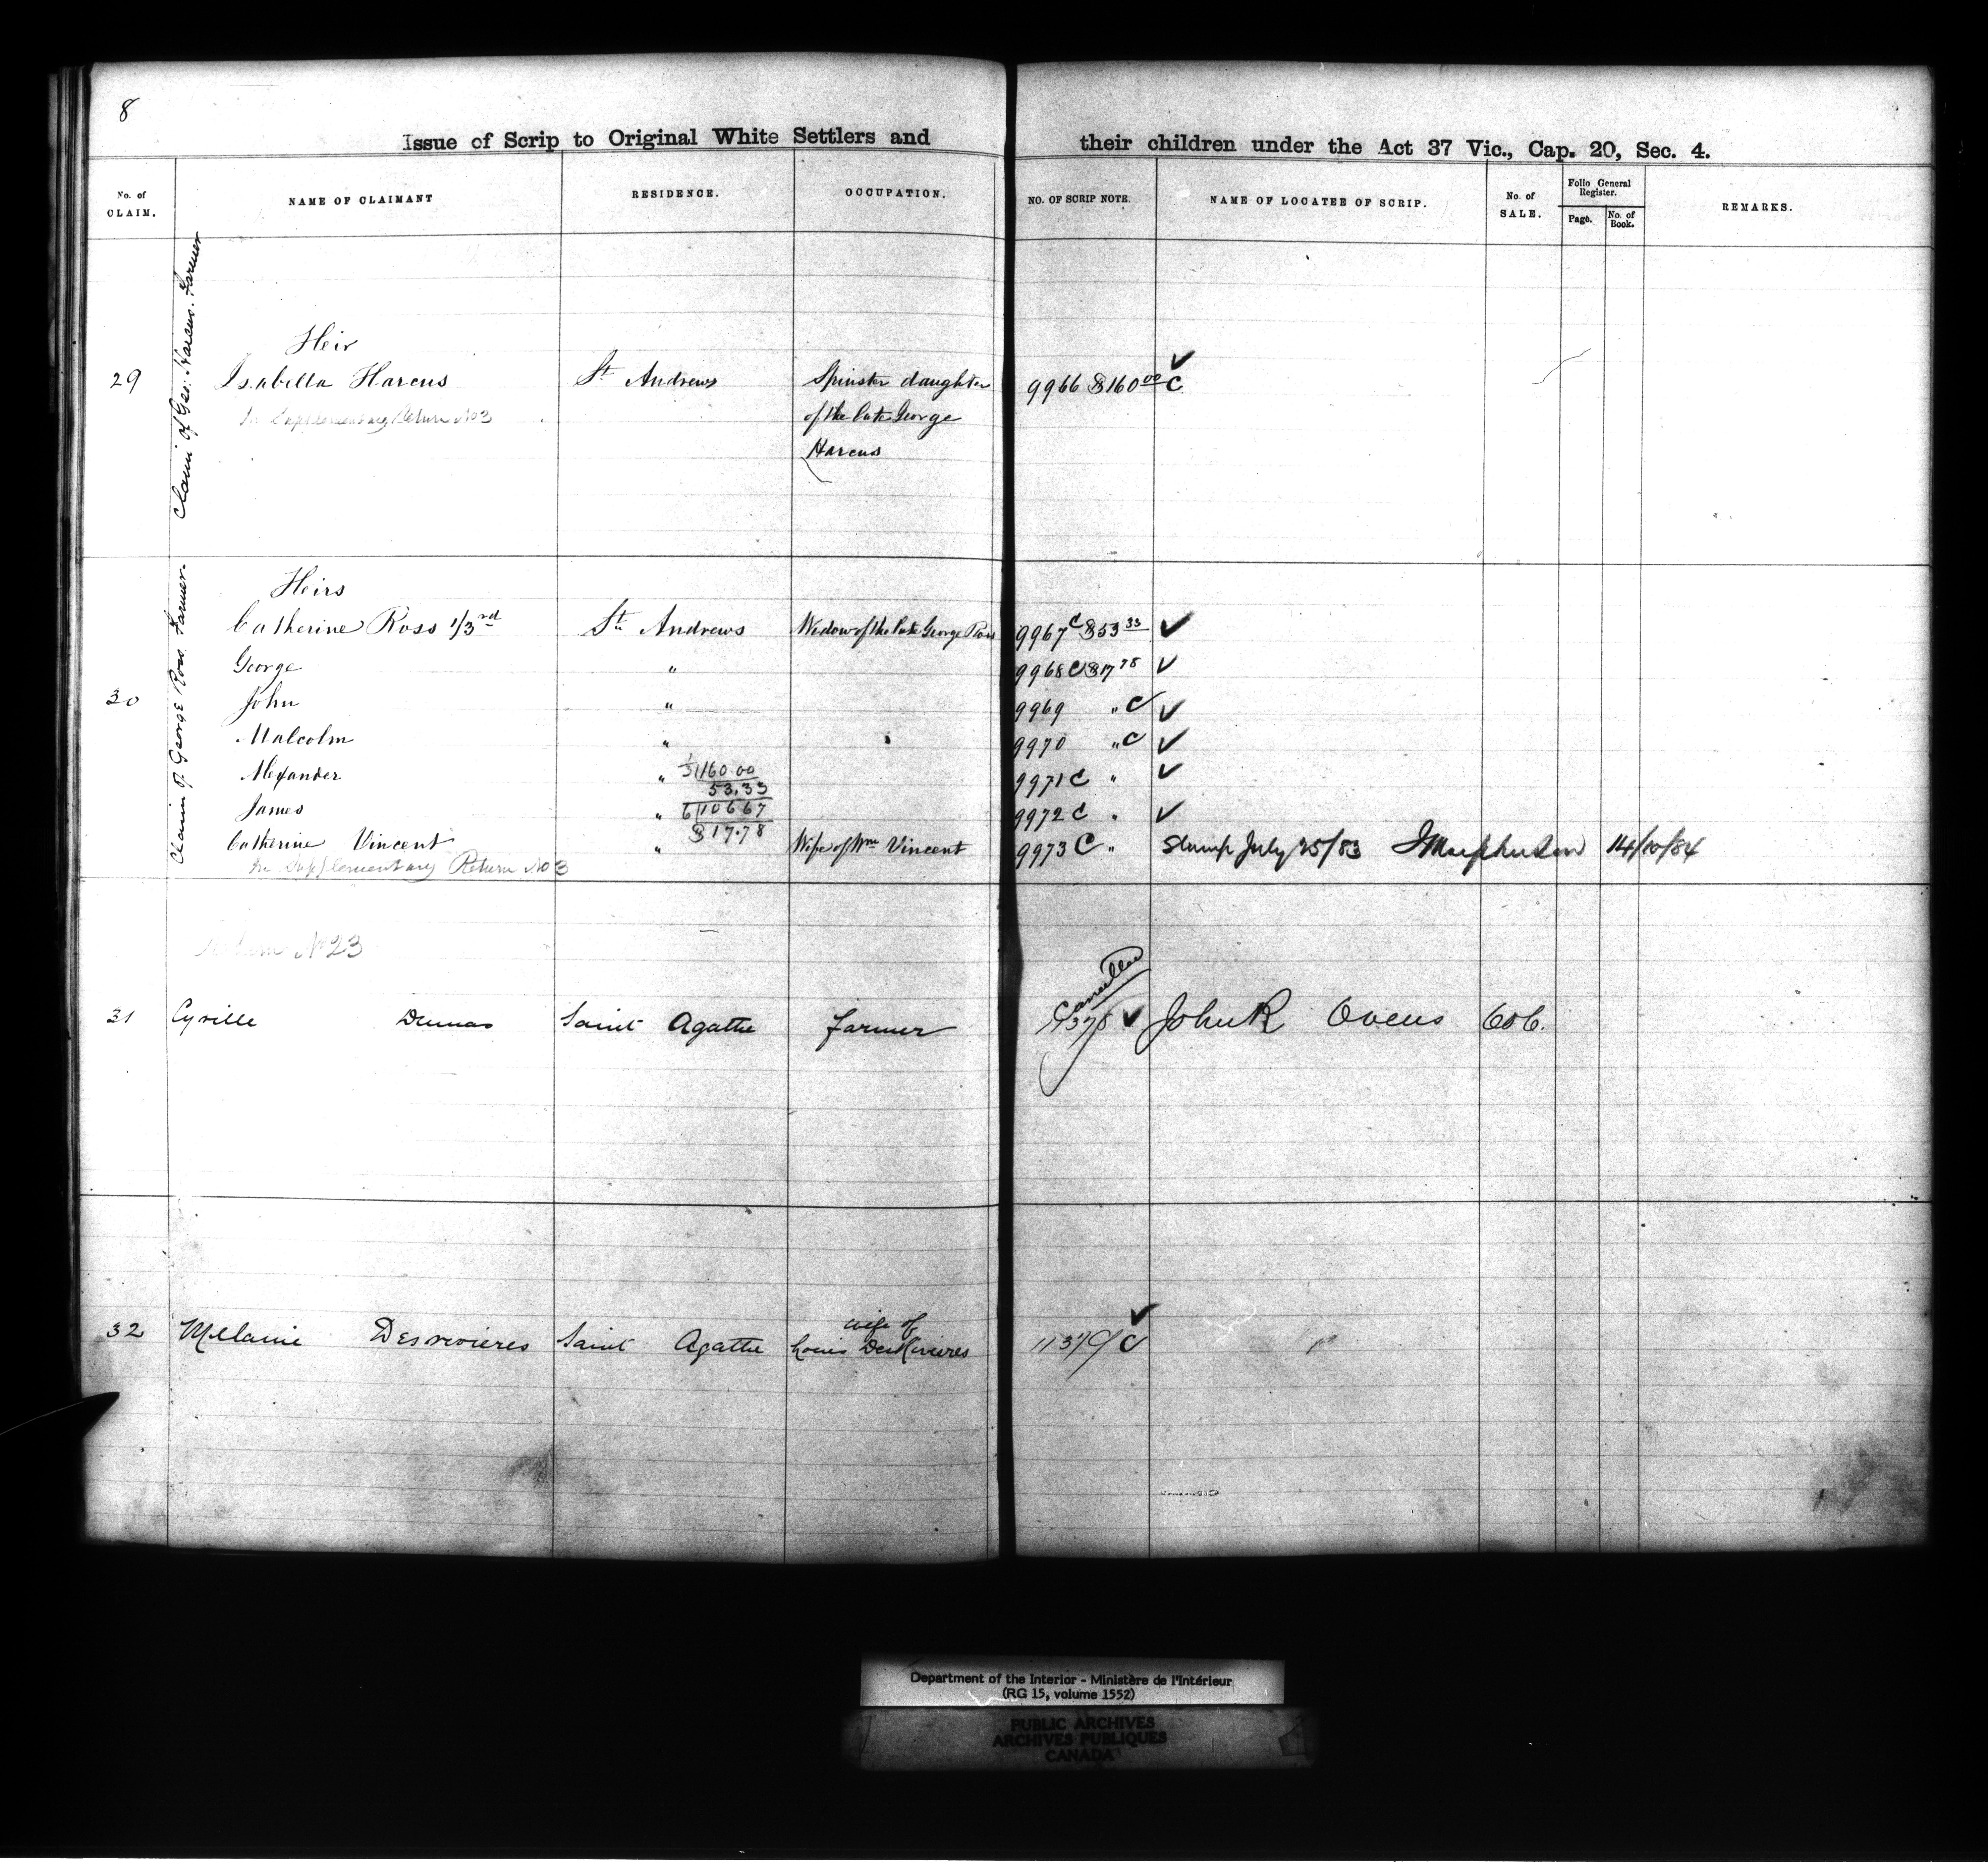 8
Issue of Scrip to Original White Settlers and their children under the Act 37 Vic., Cap. 20, Sec. 4.
No. of CLAIM. NAME OF CLAIMANT RESIDENCE. OCCUPATION. NO. OF SCRIP NOTE. NAME OF LOCATEE OF SCRIP. No. of SALE. Folio General Register. Page. No. of Book. REMARKS.
Claim of Geo: Harcus. Farmer
Heir
29 Isabella Harcus St. Andrews Spinster daughter 9966 $160.00 C
In Supplementary Return No 3 of the late George
Harcus
Claim of George Ross Farmer.
Heirs
Catherine Ross 1/3rd St. Andrews Widow of the late George Ross 9967 C $53.33
George " 9968 C $17.78
30 John " 9969 " C
Malcolm " 9970 " C
Alexander " 3)160.00 9971 C "
53.33
James " 6)106 67 9972 C "
$17.78
Catherine Vincent " Wife of Wm Vincent 9973 C " July 25/83 14/10/84
In Supplementary Return No 3
Return No 23
Cancelled
31 Cyrille Dumas Saint Agathe farmer 11378 John R Owens 606.
wife of
32 Melanie Desrivieres Saint Agathe Louis DesRivieres 11379 C
Department of the Interior - Ministère de l'Intérieur
(RG 15, volume 1552)
PUBLIC ARCHIVES
ARCHIVES PUBLIQUES
CANADA